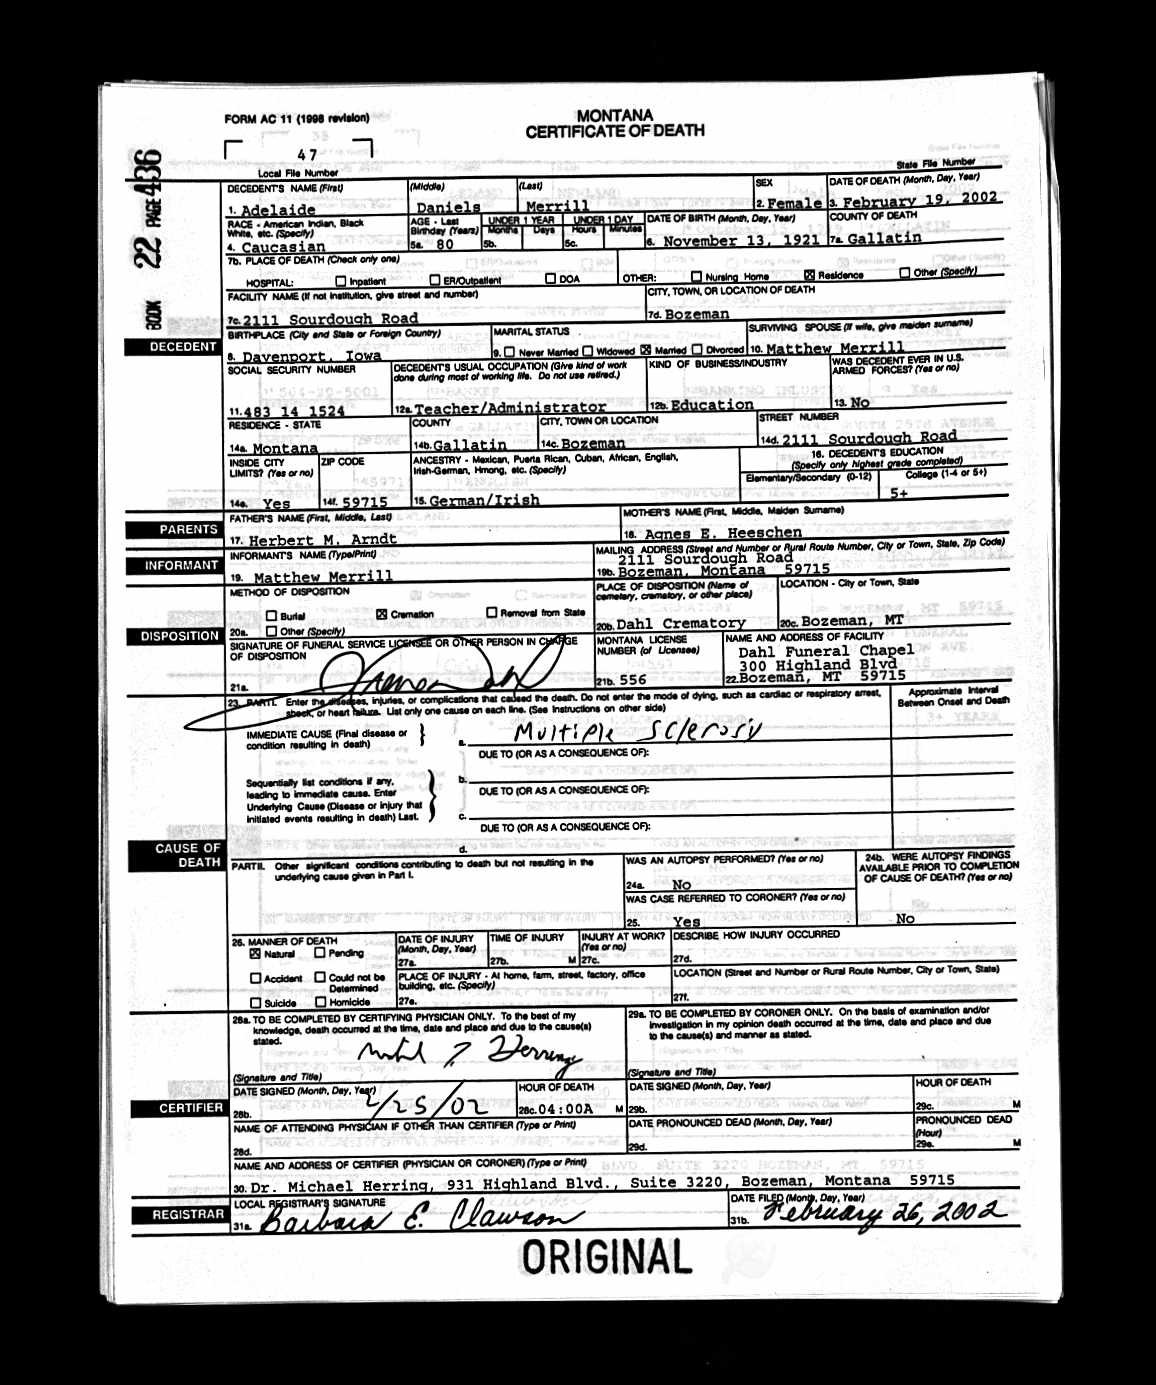 FORM AC 11 (1998 revision)
MONTANA
CERTIFICATE OF DEATH
BOOK 22 PAGE 436
47
Local File Number
State File Number
DECEDENT
DECEDENT'S NAME (First) (Middle) (Last) SEX DATE OF DEATH (Month, Day, Year)
1. Adelaide Daniels Merrill 2. Female 3. February 19, 2002
RACE - American Indian, Black White, etc. (Specify) AGE - Last Birthday (Years) UNDER 1 YEAR Months Days UNDER 1 DAY Hours Minutes DATE OF BIRTH (Month, Day, Year) COUNTY OF DEATH
4. Caucasian 5a. 80 5b. 5c. 6. November 13, 1921 7a. Gallatin
7b. PLACE OF DEATH (Check only one)
HOSPITAL: ☐ Inpatient ☐ ER/Outpatient ☐ DOA OTHER: ☐ Nursing Home ☒ Residence ☐ Other (Specify)
FACILITY NAME (If not institution, give street and number) CITY, TOWN, OR LOCATION OF DEATH
7c. 2111 Sourdough Road 7d. Bozeman
BIRTHPLACE (City and State or Foreign Country) MARITAL STATUS SURVIVING SPOUSE (If wife, give maiden surname)
8. Davenport, Iowa 9. ☐ Never Married ☐ Widowed ☒ Married ☐ Divorced 10. Matthew Merrill
SOCIAL SECURITY NUMBER DECEDENT'S USUAL OCCUPATION (Give kind of work done during most of working life. Do not use retired.) KIND OF BUSINESS/INDUSTRY WAS DECEDENT EVER IN U.S. ARMED FORCES? (Yes or no)
11. 483 14 1524 12a. Teacher/Administrator 12b. Education 13. No
RESIDENCE - STATE COUNTY CITY, TOWN OR LOCATION STREET NUMBER
14a. Montana 14b. Gallatin 14c. Bozeman 14d. 2111 Sourdough Road
INSIDE CITY LIMITS? (Yes or no) ZIP CODE ANCESTRY - Mexican, Puerto Rican, Cuban, African, English, Irish-German, Hmong, etc. (Specify) 16. DECEDENT'S EDUCATION (Specify only highest grade completed)
Elementary/Secondary (0-12) College (1-4 or 5+)
14e. Yes 14f. 59715 15. German/Irish 5+
PARENTS
FATHER'S NAME (First, Middle, Last) MOTHER'S NAME (First, Middle, Maiden Surname)
17. Herbert M. Arndt 18. Agnes E. Heeschen
INFORMANT
INFORMANT'S NAME (Type/Print) MAILING ADDRESS (Street and Number or Rural Route Number, City or Town, State, Zip Code)
2111 Sourdough Road
19. Matthew Merrill 19b. Bozeman, Montana 59715
DISPOSITION
METHOD OF DISPOSITION PLACE OF DISPOSITION (Name of cemetery, crematory, or other place) LOCATION - City or Town, State
☐ Burial ☒ Cremation ☐ Removal from State
20a. ☐ Other (Specify) 20b. Dahl Crematory 20c. Bozeman, MT
SIGNATURE OF FUNERAL SERVICE LICENSEE OR OTHER PERSON IN CHARGE OF DISPOSITION MONTANA LICENSE NUMBER (of Licensee) NAME AND ADDRESS OF FACILITY
Dahl Funeral Chapel
300 Highland Blvd
21a. 21b. 556 22. Bozeman, MT 59715
CAUSE OF DEATH
23. PART I. Enter the diseases, injuries, or complications that caused the death. Do not enter the mode of dying, such as cardiac or respiratory arrest, shock, or heart failure. List only one cause on each line. (See Instructions on other side)
Approximate Interval Between Onset and Death
IMMEDIATE CAUSE (Final disease or condition resulting in death) a. Multiple Sclerosis
DUE TO (OR AS A CONSEQUENCE OF):
Sequentially list conditions if any, leading to immediate cause. Enter Underlying Cause (Disease or injury that initiated events resulting in death) Last.
b.
DUE TO (OR AS A CONSEQUENCE OF):
c.
DUE TO (OR AS A CONSEQUENCE OF):
d.
PART II. Other significant conditions contributing to death but not resulting in the underlying cause given in Part I.
WAS AN AUTOPSY PERFORMED? (Yes or no)
24a. No
24b. WERE AUTOPSY FINDINGS AVAILABLE PRIOR TO COMPLETION OF CAUSE OF DEATH? (Yes or no)
No
WAS CASE REFERRED TO CORONER? (Yes or no)
25. Yes
26. MANNER OF DEATH
☒ Natural ☐ Pending
☐ Accident ☐ Could not be Determined
☐ Suicide ☐ Homicide
DATE OF INJURY (Month, Day, Year) 27a.
TIME OF INJURY 27b. M
INJURY AT WORK? (Yes or no) 27c.
DESCRIBE HOW INJURY OCCURRED 27d.
PLACE OF INJURY - At home, farm, street, factory, office building, etc. (Specify) 27e.
LOCATION (Street and Number or Rural Route Number, City or Town, State) 27f.
CERTIFIER
28a. TO BE COMPLETED BY CERTIFYING PHYSICIAN ONLY. To the best of my knowledge, death occurred at the time, date and place and due to the cause(s) stated.
Herring
(Signature and Title)
29a. TO BE COMPLETED BY CORONER ONLY. On the basis of examination and/or investigation in my opinion death occurred at the time, date and place and due to the cause(s) and manner as stated.
(Signature and Title)
DATE SIGNED (Month, Day, Year) HOUR OF DEATH DATE SIGNED (Month, Day, Year) HOUR OF DEATH
28b. 2/25/02 28c. 04:00A M 29b. 29c. M
NAME OF ATTENDING PHYSICIAN IF OTHER THAN CERTIFIER (Type or Print) DATE PRONOUNCED DEAD (Month, Day, Year) PRONOUNCED DEAD (Hour)
28d. 29d. 29e. M
NAME AND ADDRESS OF CERTIFIER (PHYSICIAN OR CORONER) (Type or Print)
30. Dr. Michael Herring, 931 Highland Blvd., Suite 3220, Bozeman, Montana 59715
REGISTRAR
LOCAL REGISTRAR'S SIGNATURE DATE FILED (Month, Day, Year)
31a. Barbara E. Clawson 31b. February 26, 2002
ORIGINAL